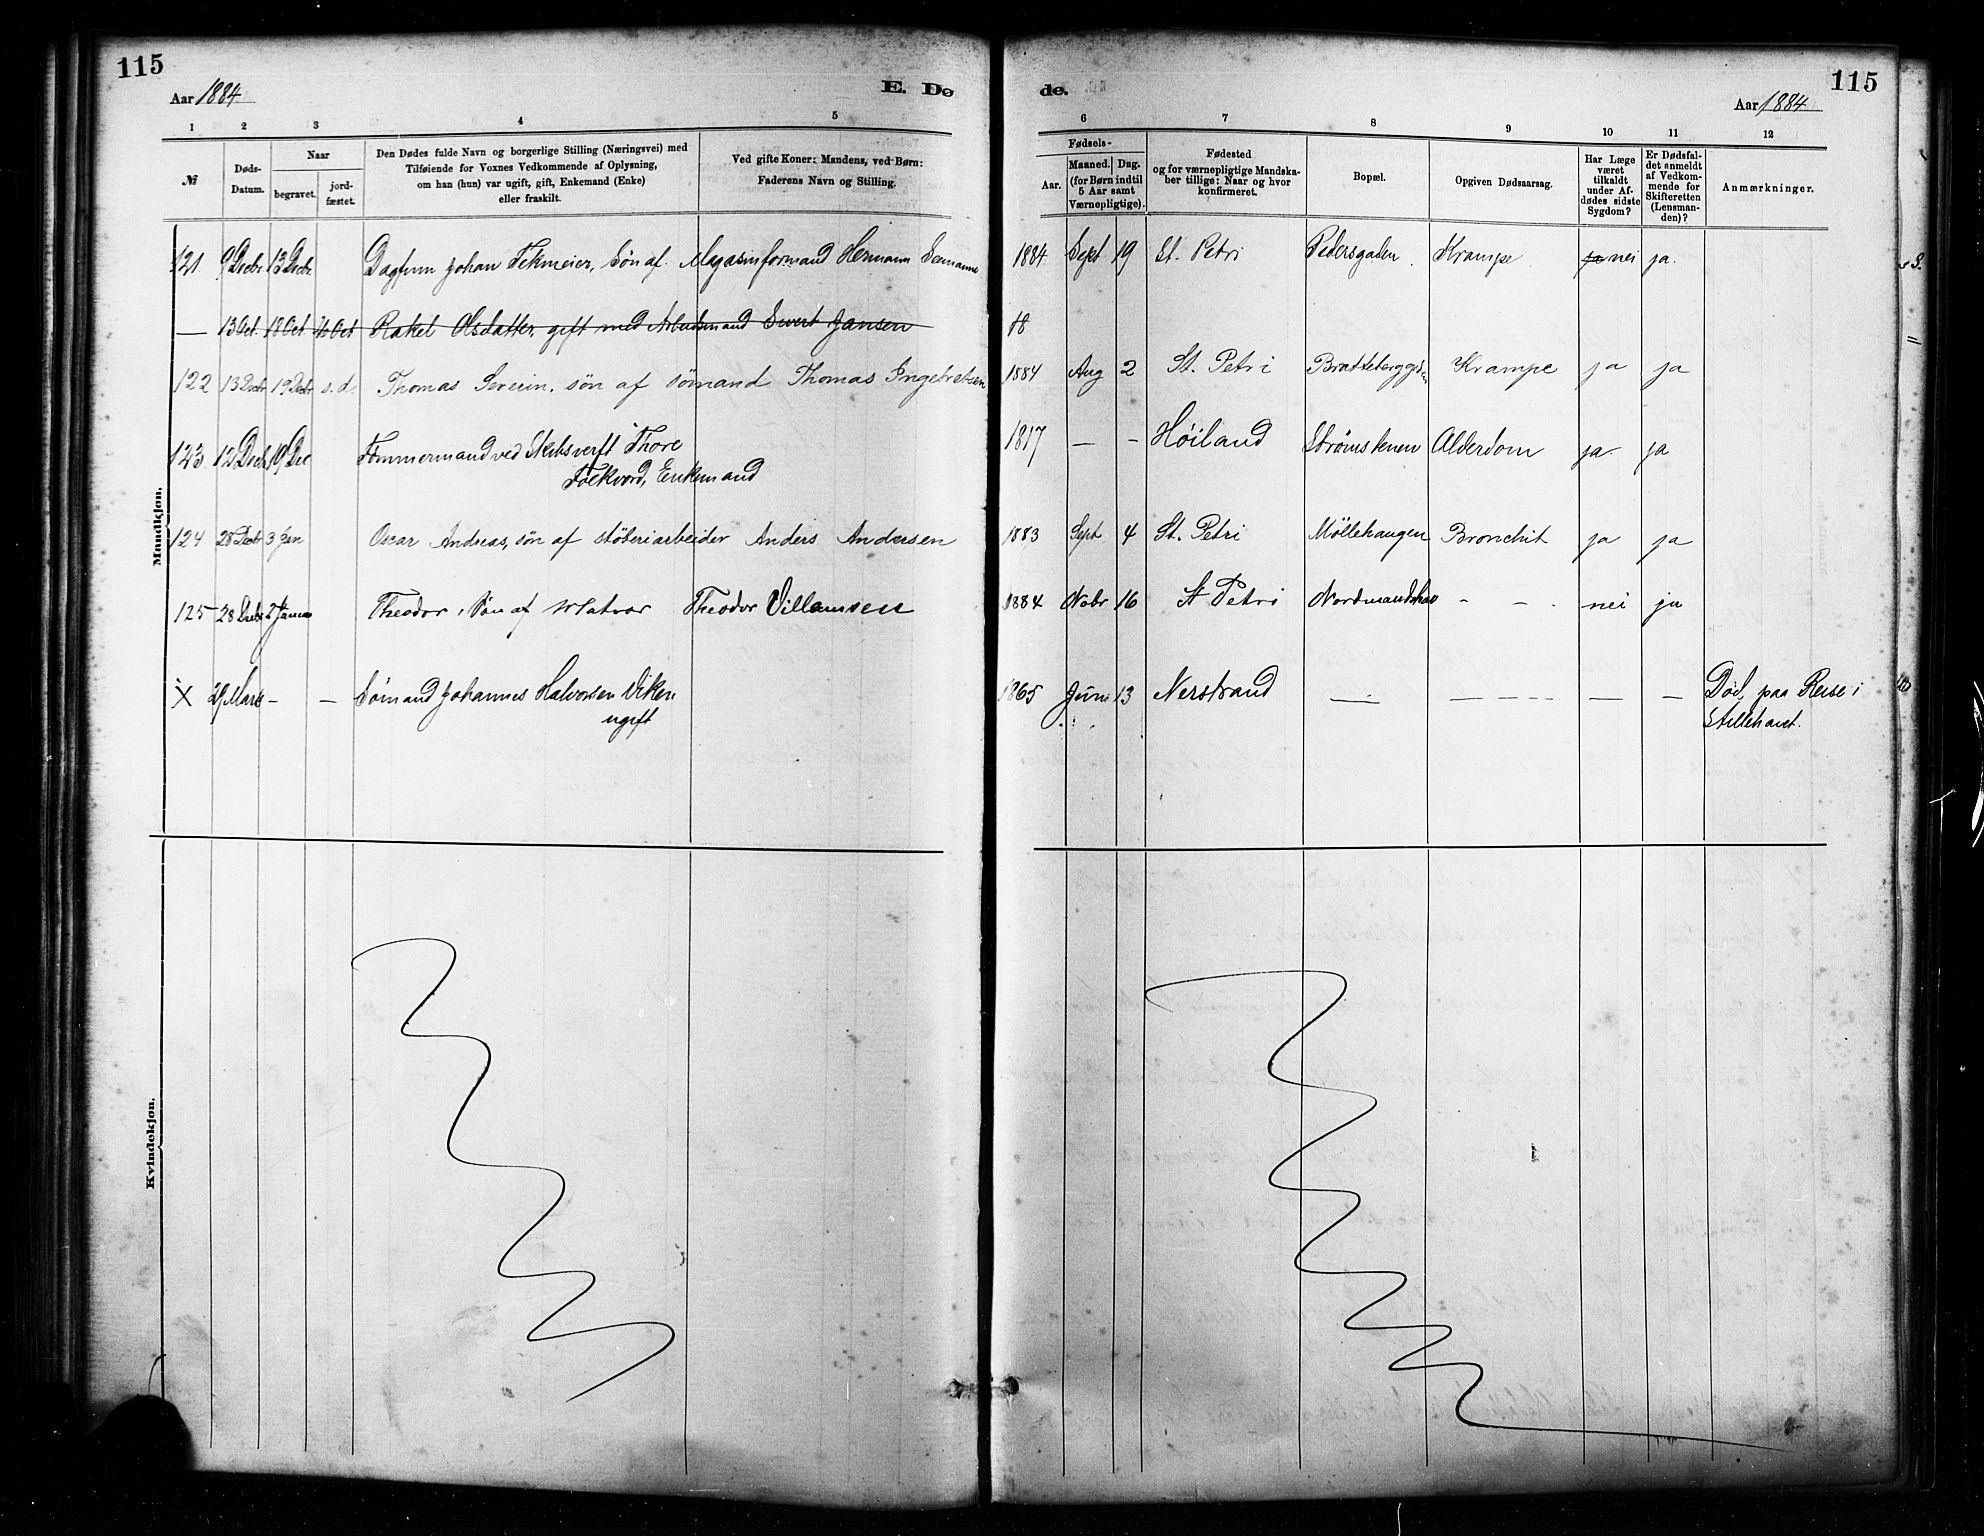 115
Aar 1884
E. Dø
1 2 3 4 5
№
Døds-
Datum.
Naar
begravet.
jord-
fæstet.
Den Dødes fulde Navn og borgerlige Stilling (Næringsvei) med
Tilføiende for Voxnes Vedkommende af Oplysning,
om han (hun) var ugift, gift, Enkemand (Enke)
eller fraskilt.
Ved gifte Koner: Mandens, ved Børn:
Faderens Navn og Stilling.
Mandkjøn.
121 9 Decbr 13 Decbr Dagfinn Johan Tekmeier, Søn af Magasinformand Hermann
— 13 Oct. 18 Oct 26 Oct Rakel Olsdatter, gift med Arbeidsmand Sivert Jansen
122 13 Decbr 19 Decbr s. d. Thomas Severin, søn af sømand Thomas Ingebretsen
123 12 Decbr 19 Dec Tømmermand ved Skibsverft Thore
Folkvord, Enkemand
124 28 Decbr 3 Jan Oscar Andreas, søn af støberiarbeider Anders Andersen
125 28 Decbr 2 Januar Theodor, Søn af Matros Theodor Villamsen
X 29 Mars — — Sømand Johannes Halvorsen Viken
ugift
Kvindekjøn.
de.
115
Aar 1884
6 7 8 9 10 11 12
Fødsels-
Aar.
Maaned. Dag.
(for Børn indtil
5 Aar samt
Værnepligtige).
Fødested
og for værnepligtige Mandska-
ber tillige: Naar og hvor
konfirmeret.
Bopæl.
Opgiven Dødsaarsag.
Har Læge
været
tilkaldt
under Af-
dødes sidste
Sygdom?
Er Dødsfal-
det anmeldt
af Vedkom-
mende for
Skifteretten
(Lensman-
den)?
Anmærkninger.
1884 Sept 19 St. Petri Pedersgaden Krampe ja nei ja.
18
1884 Aug 2 St. Petri Krampe ja ja
1817 — - Høiland Strømstenen Alderdom ja ja
1883 Sept 4 St. Petri Møllehaugen Bronchit ja ja
1884 Nobr 16 St Petri - - . nei ja
1865 Juni 13 Nerstrand — — — — — — — Død, paa Reise i
Stillehavet.